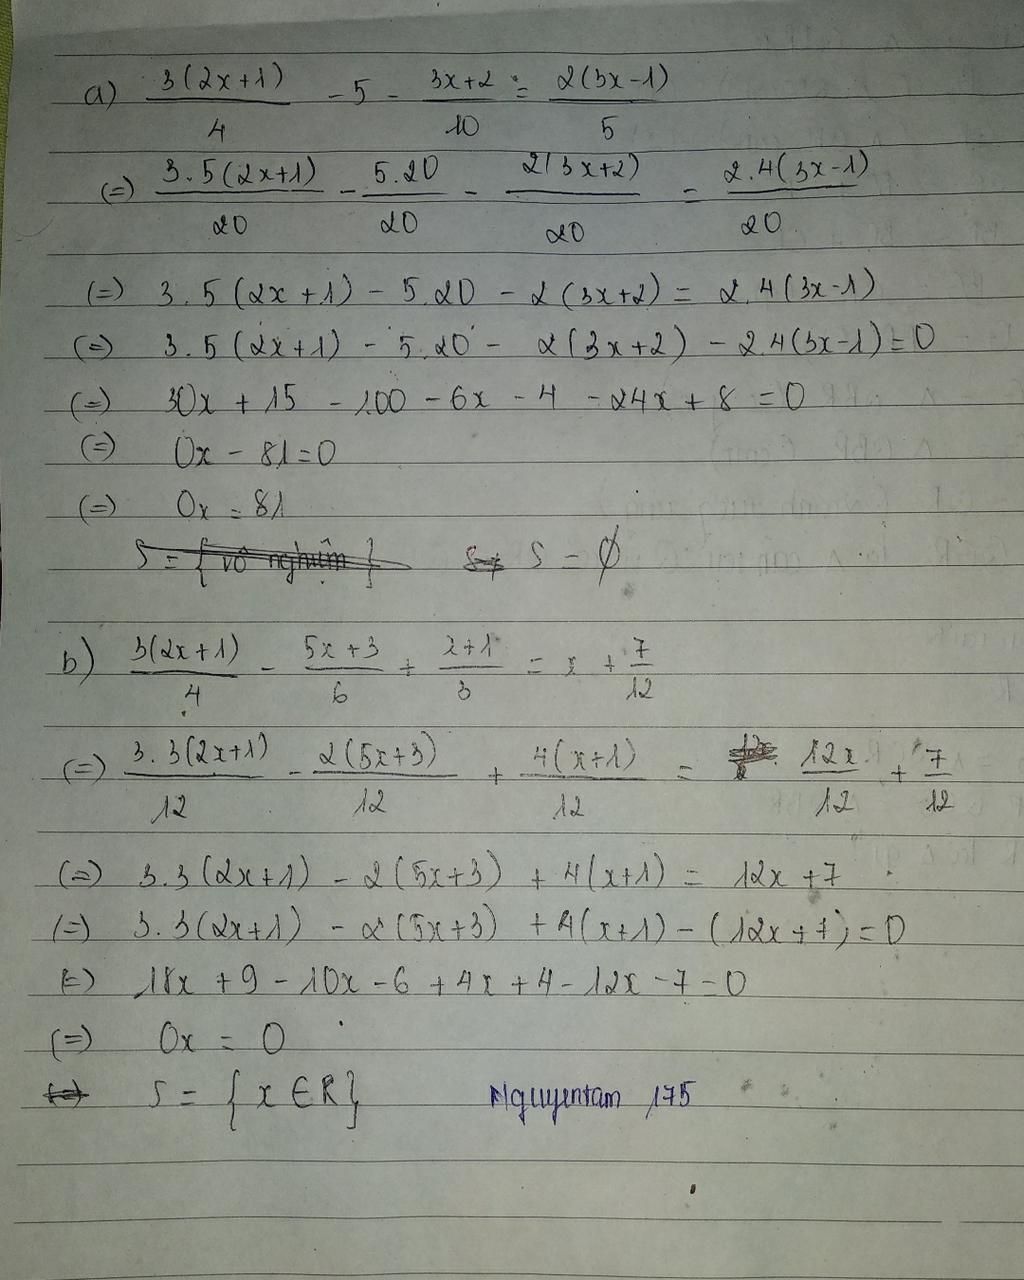 a) 3(2x+1)/4 - 5 - 3x+2/10 = 2(3x-1)/5
(=) 3.5(2x+1)/20 - 5.20/20 - 2(3x+2)/20 = 2.4(3x-1)/20
(=) 3.5(2x+1) - 5.20 - 2(3x+2) = 2.4(3x-1)
(=) 3.5(2x+1) - 5.20 - 2(3x+2) - 2.4(3x-1) = 0
(=) 30x + 15 - 100 - 6x - 4 - 24x + 8 = 0
(=) 0x - 81 = 0
(=) 0x = 81
S = { vô nghiệm } S = ∅
b) 3(2x+1)/4 - 5x+3/6 + x+1/3 = x + 7/12
(=) 3.3(2x+1)/12 - 2(5x+3)/12 + 4(x+1)/12 = 12x/12 + 7/12
(=) 3.3(2x+1) - 2(5x+3) + 4(x+1) = 12x+7
(=) 3.3(2x+1) - 2(5x+3) + 4(x+1) - (12x+7) = 0
(=) 18x + 9 - 10x - 6 + 4x + 4 - 12x - 7 = 0
(=) 0x = 0
(=) S = { x ∈ R } Nguyentam 175